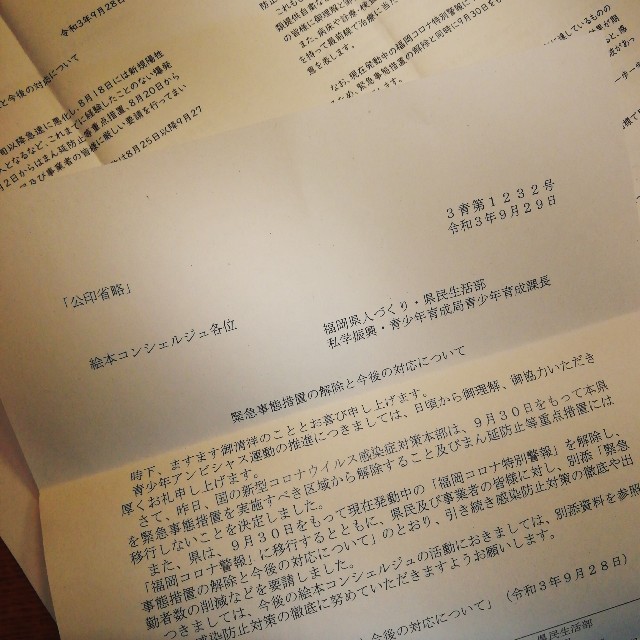 令和3年9月28日
と今後の対応について
旬以降急速に悪化し、8月18日には新規陽性
人となるなど、これまでに経験したことのない爆発
2日からはまん延防止等重点措置、8月20日から
及び事業者の皆様に厳しい要請を行ってまい
は8月25日以降9月27
の皆様に御理解と
また、病床や診療、検査
を持って最前線で治療に当た
意を表します。
なお、現在発動中の福岡コロナ特別警報に
緊急事態措置の解除と同時に9月30日を
3青第1232号
令和3年9月29日
「公印省略」
絵本コンシェルジュ各位
福岡県人づくり・県民生活部
私学振興・青少年育成局青少年育成課長
緊急事態措置の解除と今後の対応について
時下、ますます御清祥のこととお喜び申し上げます。
青少年アンビシャス運動の推進につきましては、日頃から御理解、御協力いただき
厚くお礼申し上げます。
さて、昨日、国の新型コロナウイルス感染症対策本部は、9月30日をもって本県
を緊急事態措置を実施すべき区域から解除すること及びまん延防止等重点措置には
移行しないことを決定しました。
また、県は、9月30日をもって現在発動中の「福岡コロナ特別警報」を解除し、
「福岡コロナ警報」に移行するとともに、県民及び事業者の皆様に対し、別添「緊急
事態措置の解除と今後の対応について」のとおり、引き続き感染防止対策の徹底や出
勤者数の削減などを要請しました。
つきましては、今後の絵本コンシェルジュの活動におきましては、別添資料を参照
感染防止対策の徹底に努めていただきますようお願いします。
今後の対応について」（令和3年9月28日）
県民生活部